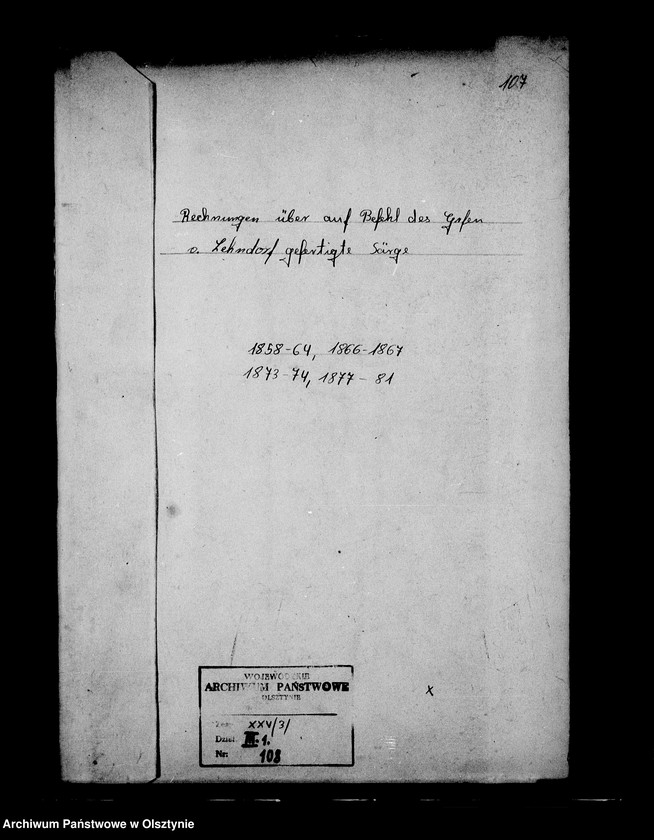 107
Rechnungen über auf Befehl des Grfen
v. Lehndorf gefertigte Särge
1858-64, 1866-1867
1873-74, 1877-81
WOJEWÓDZKIE
ARCHIWUM PAŃSTWOWE
OLSZTYNIE
XXV/3/
Dział III. 1.
Nr: 108
x
Archiwum Państwowe w Olsztynie